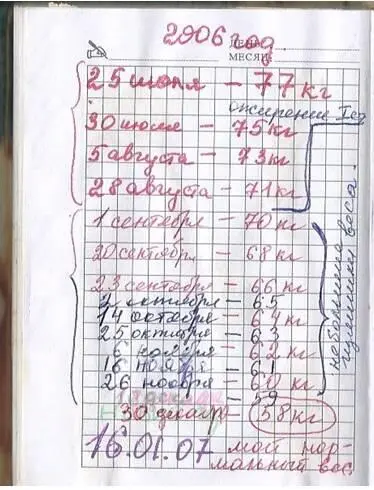 2006 год
МЕСЯЦ
25 июля – 77 кг
ожирение I ст
30 июля – 75 кг
5 августа – 73 кг
28 августа – 71 кг
1 сентября – 70 кг
20 сентября – 68 кг
23 сентября – 66 кг
2 октября – 65
14 октября – 64 кг
25 октября – 63
6 ноября – 62 кг
16 ноября – 61
26 ноября – 60 кг
59
30 декабр 58 кг
16.01.07 мой нор-
мальный вес
небольшие
излишки веса.